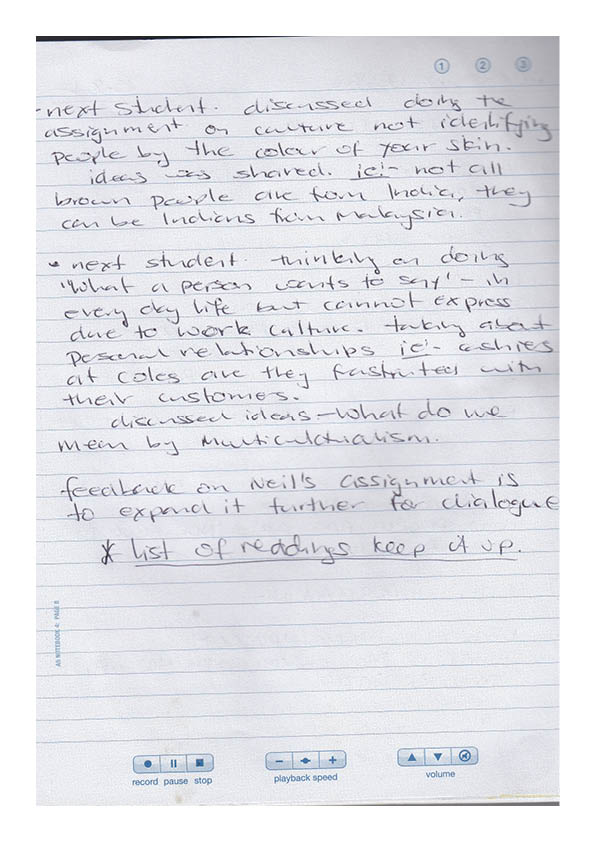 1 2 3
- next student. discussed doing the
assignment on culture not identifying
people by the colour of your skin.
ideas was shared. ie:- not all
brown people are from India, they
can be Indians from Malaysia.
• next student. thinking on doing
'What a person wants to say' - in
every day life but cannot express
due to work culture. talking about
personal relationships ie:- cashiers
at coles are they frustrated with
their customers.
discussed ideas - what do we
mean by Multiculturalism.
feedback on Neil's assignment is
to expend it further for dialogue
* list of readings keep it up.
A5 NOTEBOOK 4: PAGE 8
record pause stop
playback speed
volume